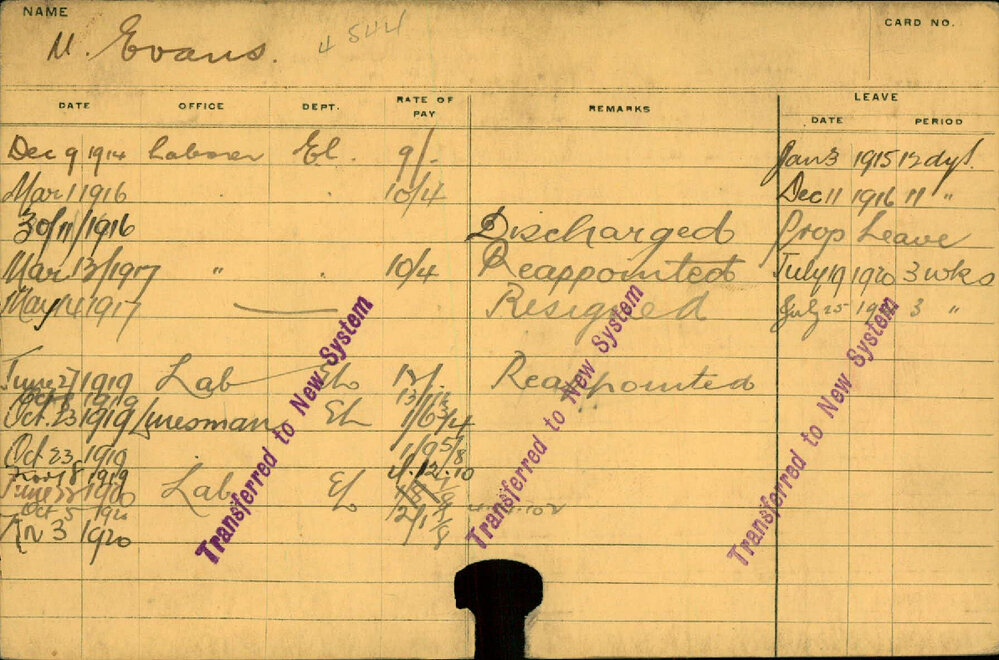 NAME
M. Evans. 4544
CARD NO.
DATE OFFICE DEPT. RATE OF PAY REMARKS LEAVE
DATE PERIOD
Dec 9 1914 Laborer El. 9/- Jan 3 1915 12 dys.
Mar 1 1916 " " 10/4 Dec 11 1916 11 "
30/11/1916 Discharged Prop Leave
Mar 13/1917 " " 10/4 Reappointed July 19 1920 3 wks
May 14 1917 Resigned July 25 3 "
June 27 1919 Lab El 12/- Reappointed
1919 13/
Oct. 23 1919 Linesman El 1/6 3/4
Oct 23 1919 1/9 5/8
Nov 8 1919 4.12.10
June 1920 Lab El
Oct 5 2/1
Nov 3 1920
Transferred to New System
Transferred to New System
Transferred to New System